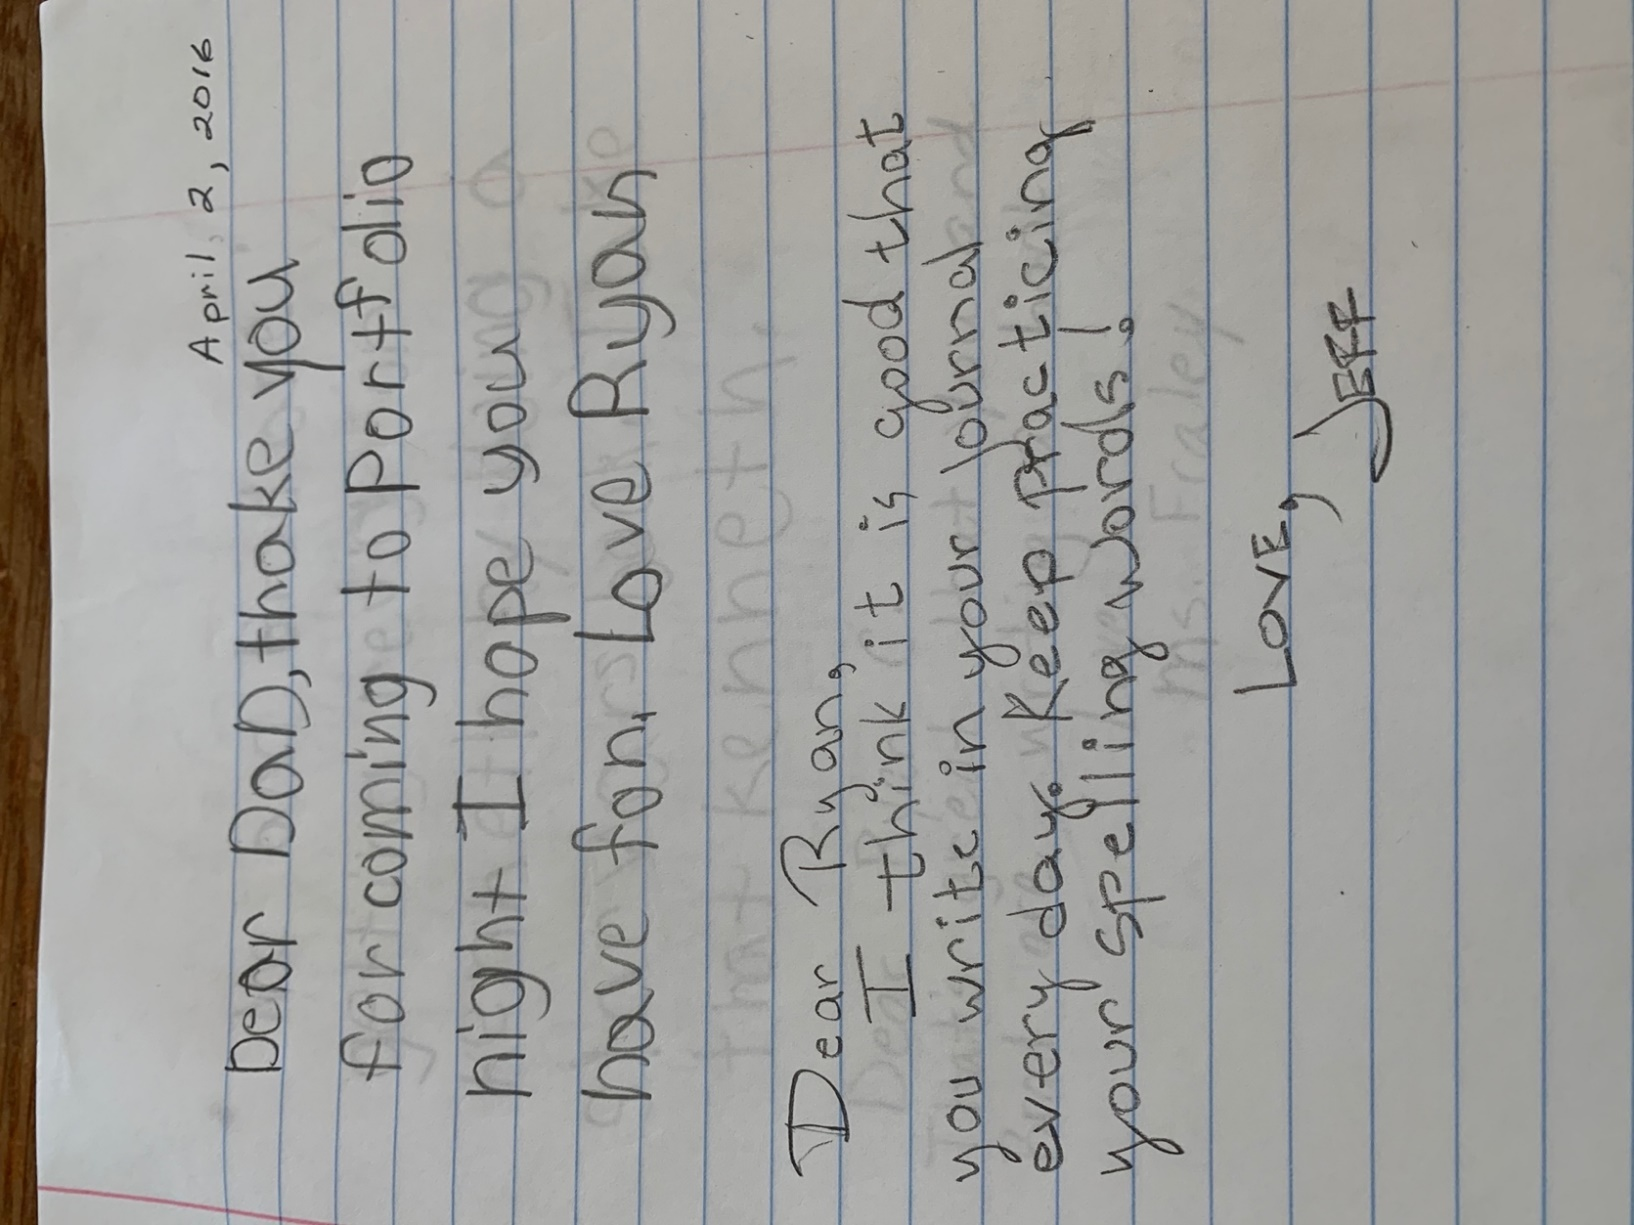 April. 2, 2016
Dear Dad, thake you
for coming to Portfolio
night I hope you
have fon. Love Ryan
Dear Ryan,
I think it is good that
you write in your journal
every day. Keep practicing
your spelling words!
Love,
Jeff